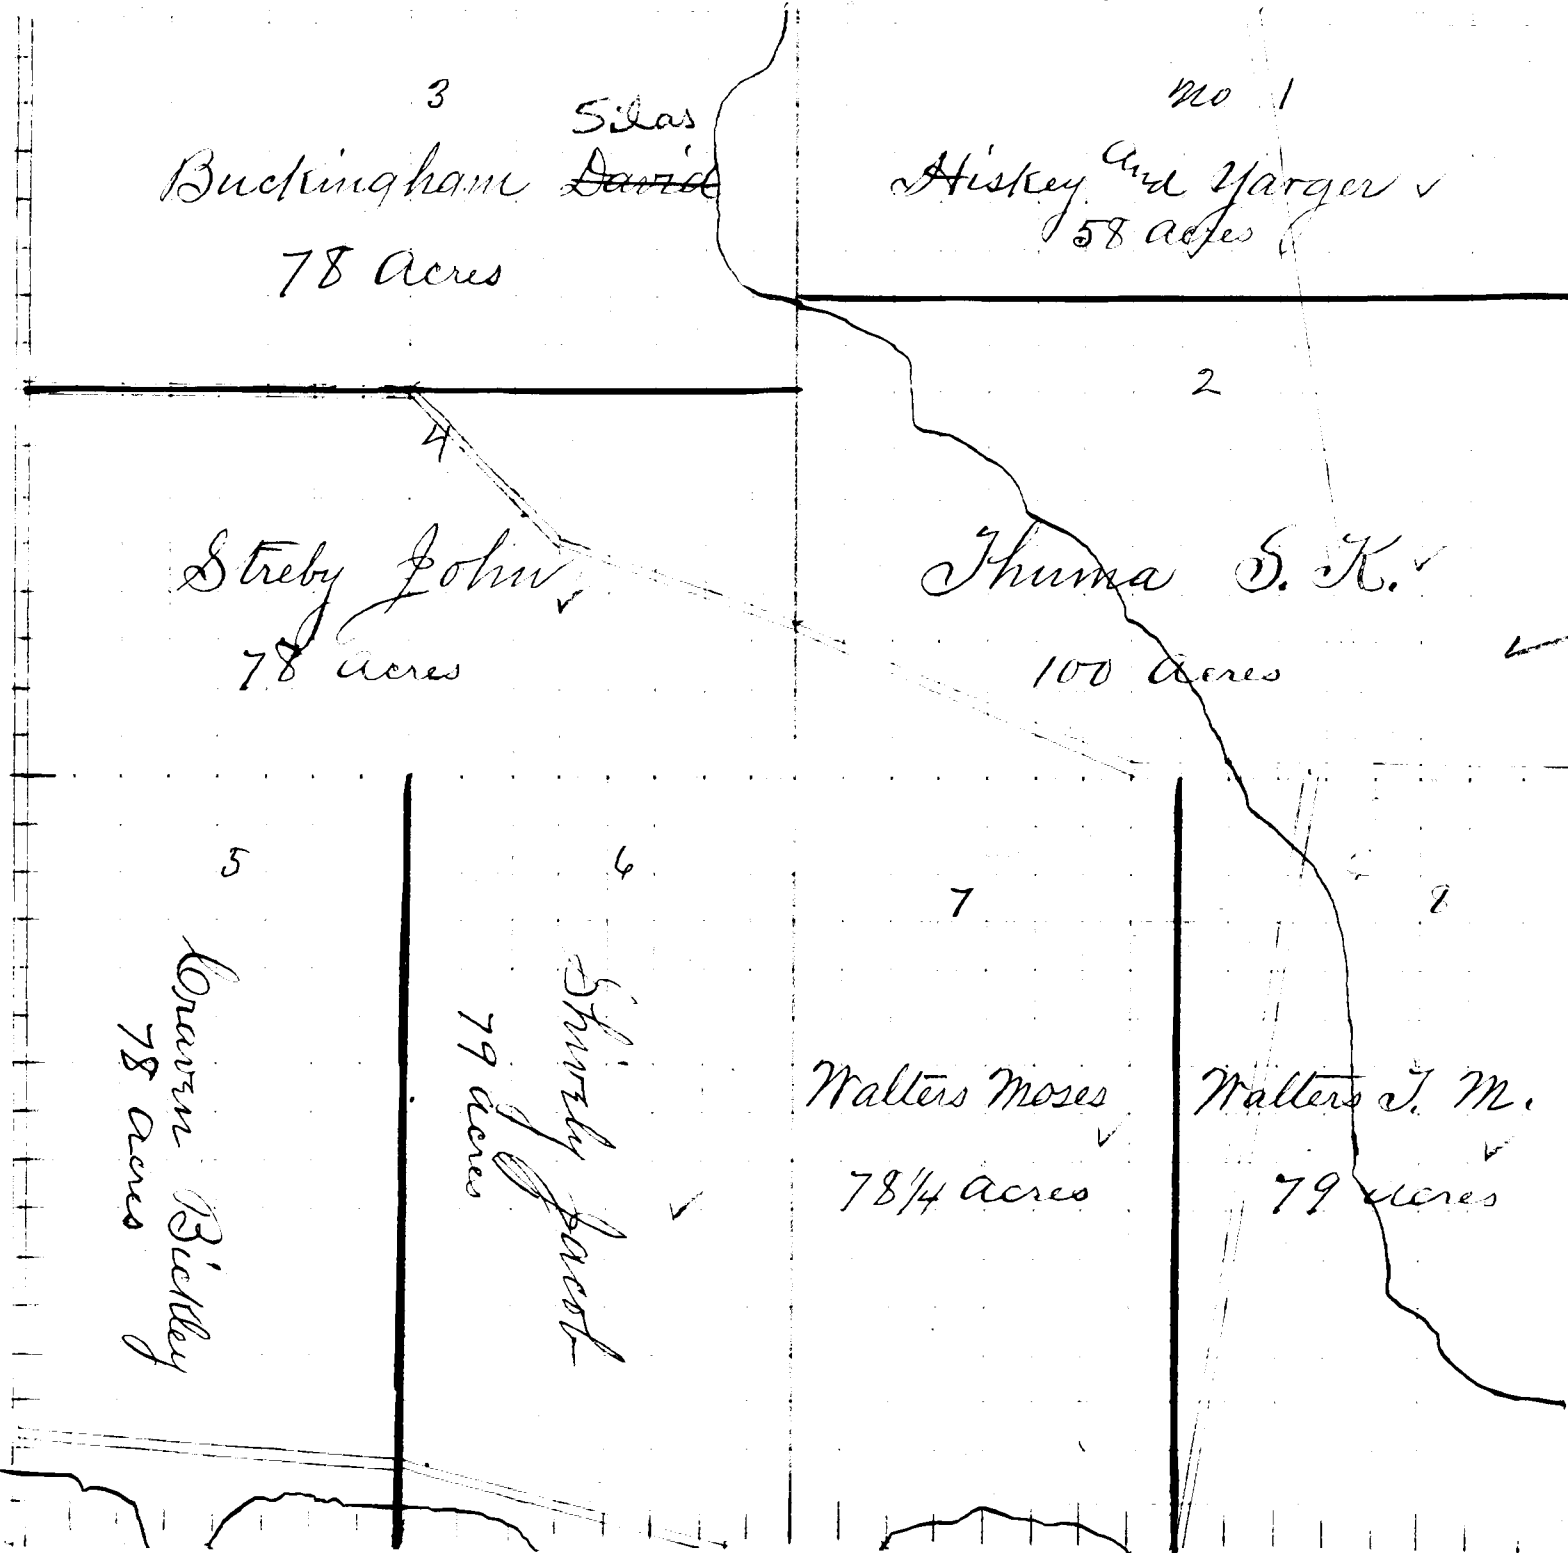 3
Silas
Buckingham David
78 Acres
No 1
Hiskey and Yarger
58 Acres
4
Streby John
78 acres
2
Thuma S. K.
100 Acres
5
Craven Bickley
78 acres
6
Shively Jacob
79 acres
7
Walters Moses
78 1/4 acres
8
Walters T. M.
79 acres